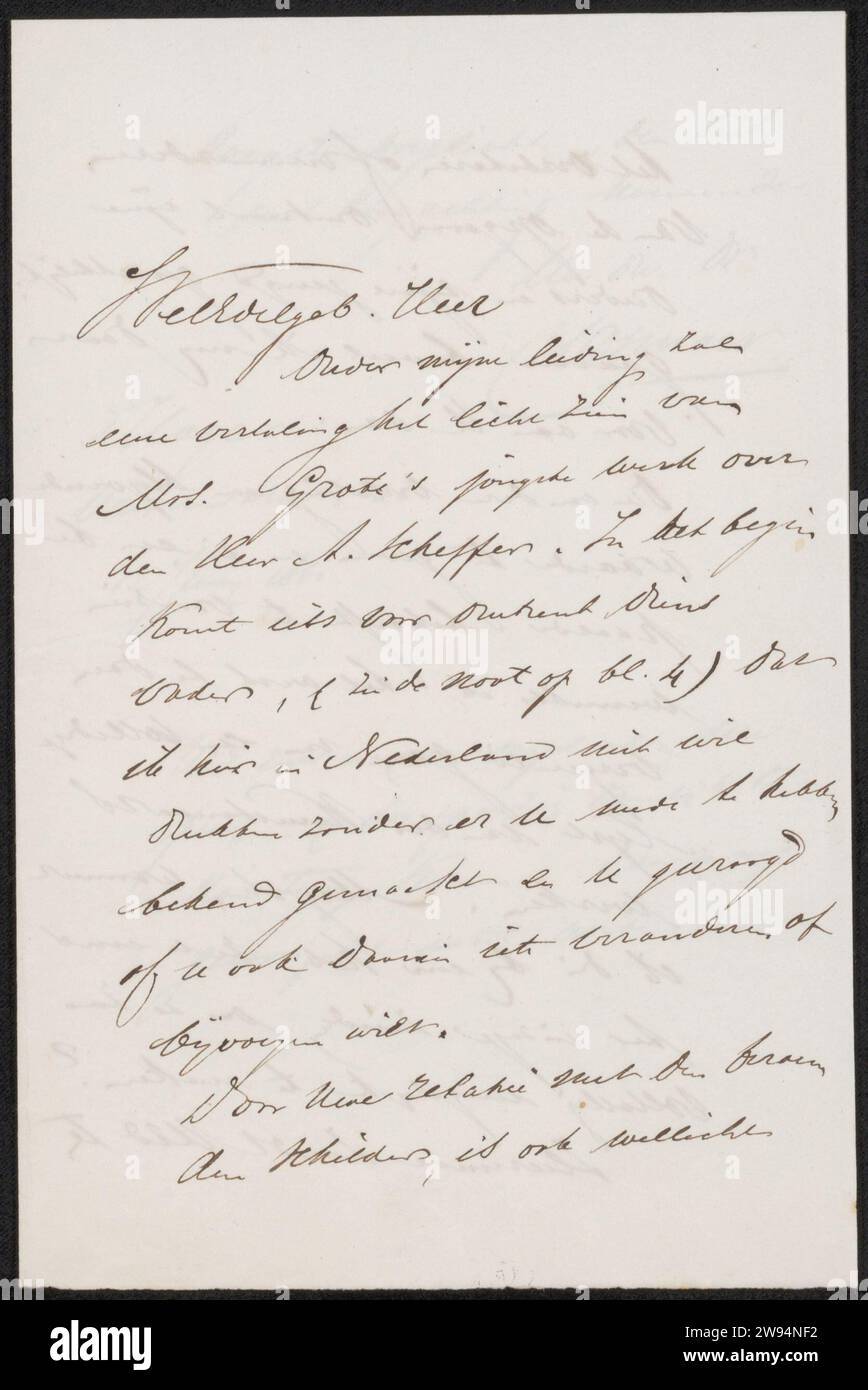 WelEdelgeb. Heer
Onder mijne leiding zal
eene vertaling het licht zien van
Mrs. Grote's jongste werk over
den Heer A. Scheffer. In het begin
komt iets voor omtrent diens
vader, (zie de noot op bl. 4) dat
ik hier in Nederland niet wil
drukken zonder er u mede te hebben
bekend gemaakt en u gevraagd
of u ook daarin iets veranderen of
bijvoegen wilt.
Door Uwe relatie met den beroem
den schilder, is ook wellicht
alamy
Image ID: 2W94NF2
www.alamy.com